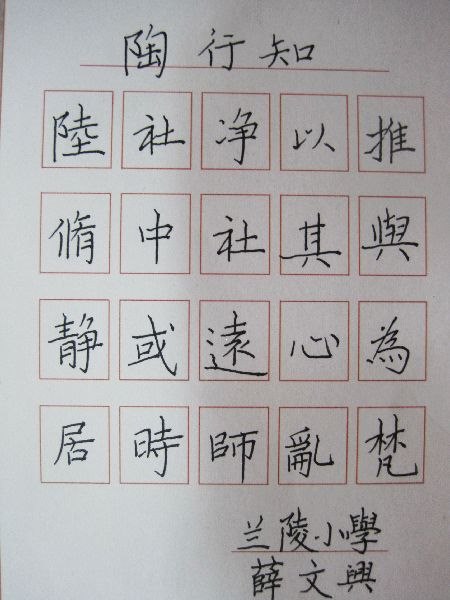 陶行知
陸脩静居
社中或時
净社遠師
以其心亂
推與為梵
兰陵小學
薛文興